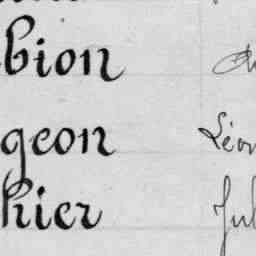 bion
geon Léon
hier Jul